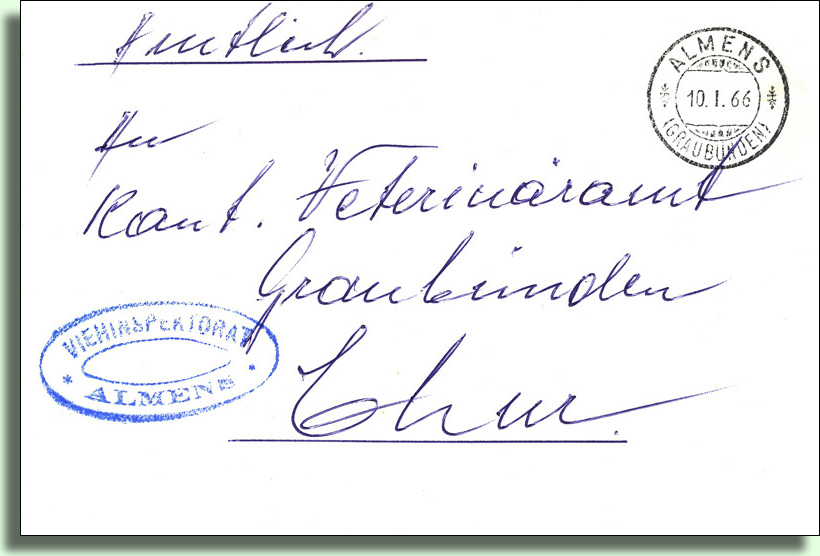 Amtlich.
ALMENS
10. I. 66
(GRAUBÜNDEN)
An
Kant. Veterinäramt
Graubünden
VIEHINSPEKTORAT
* ALMENS *
Chur.